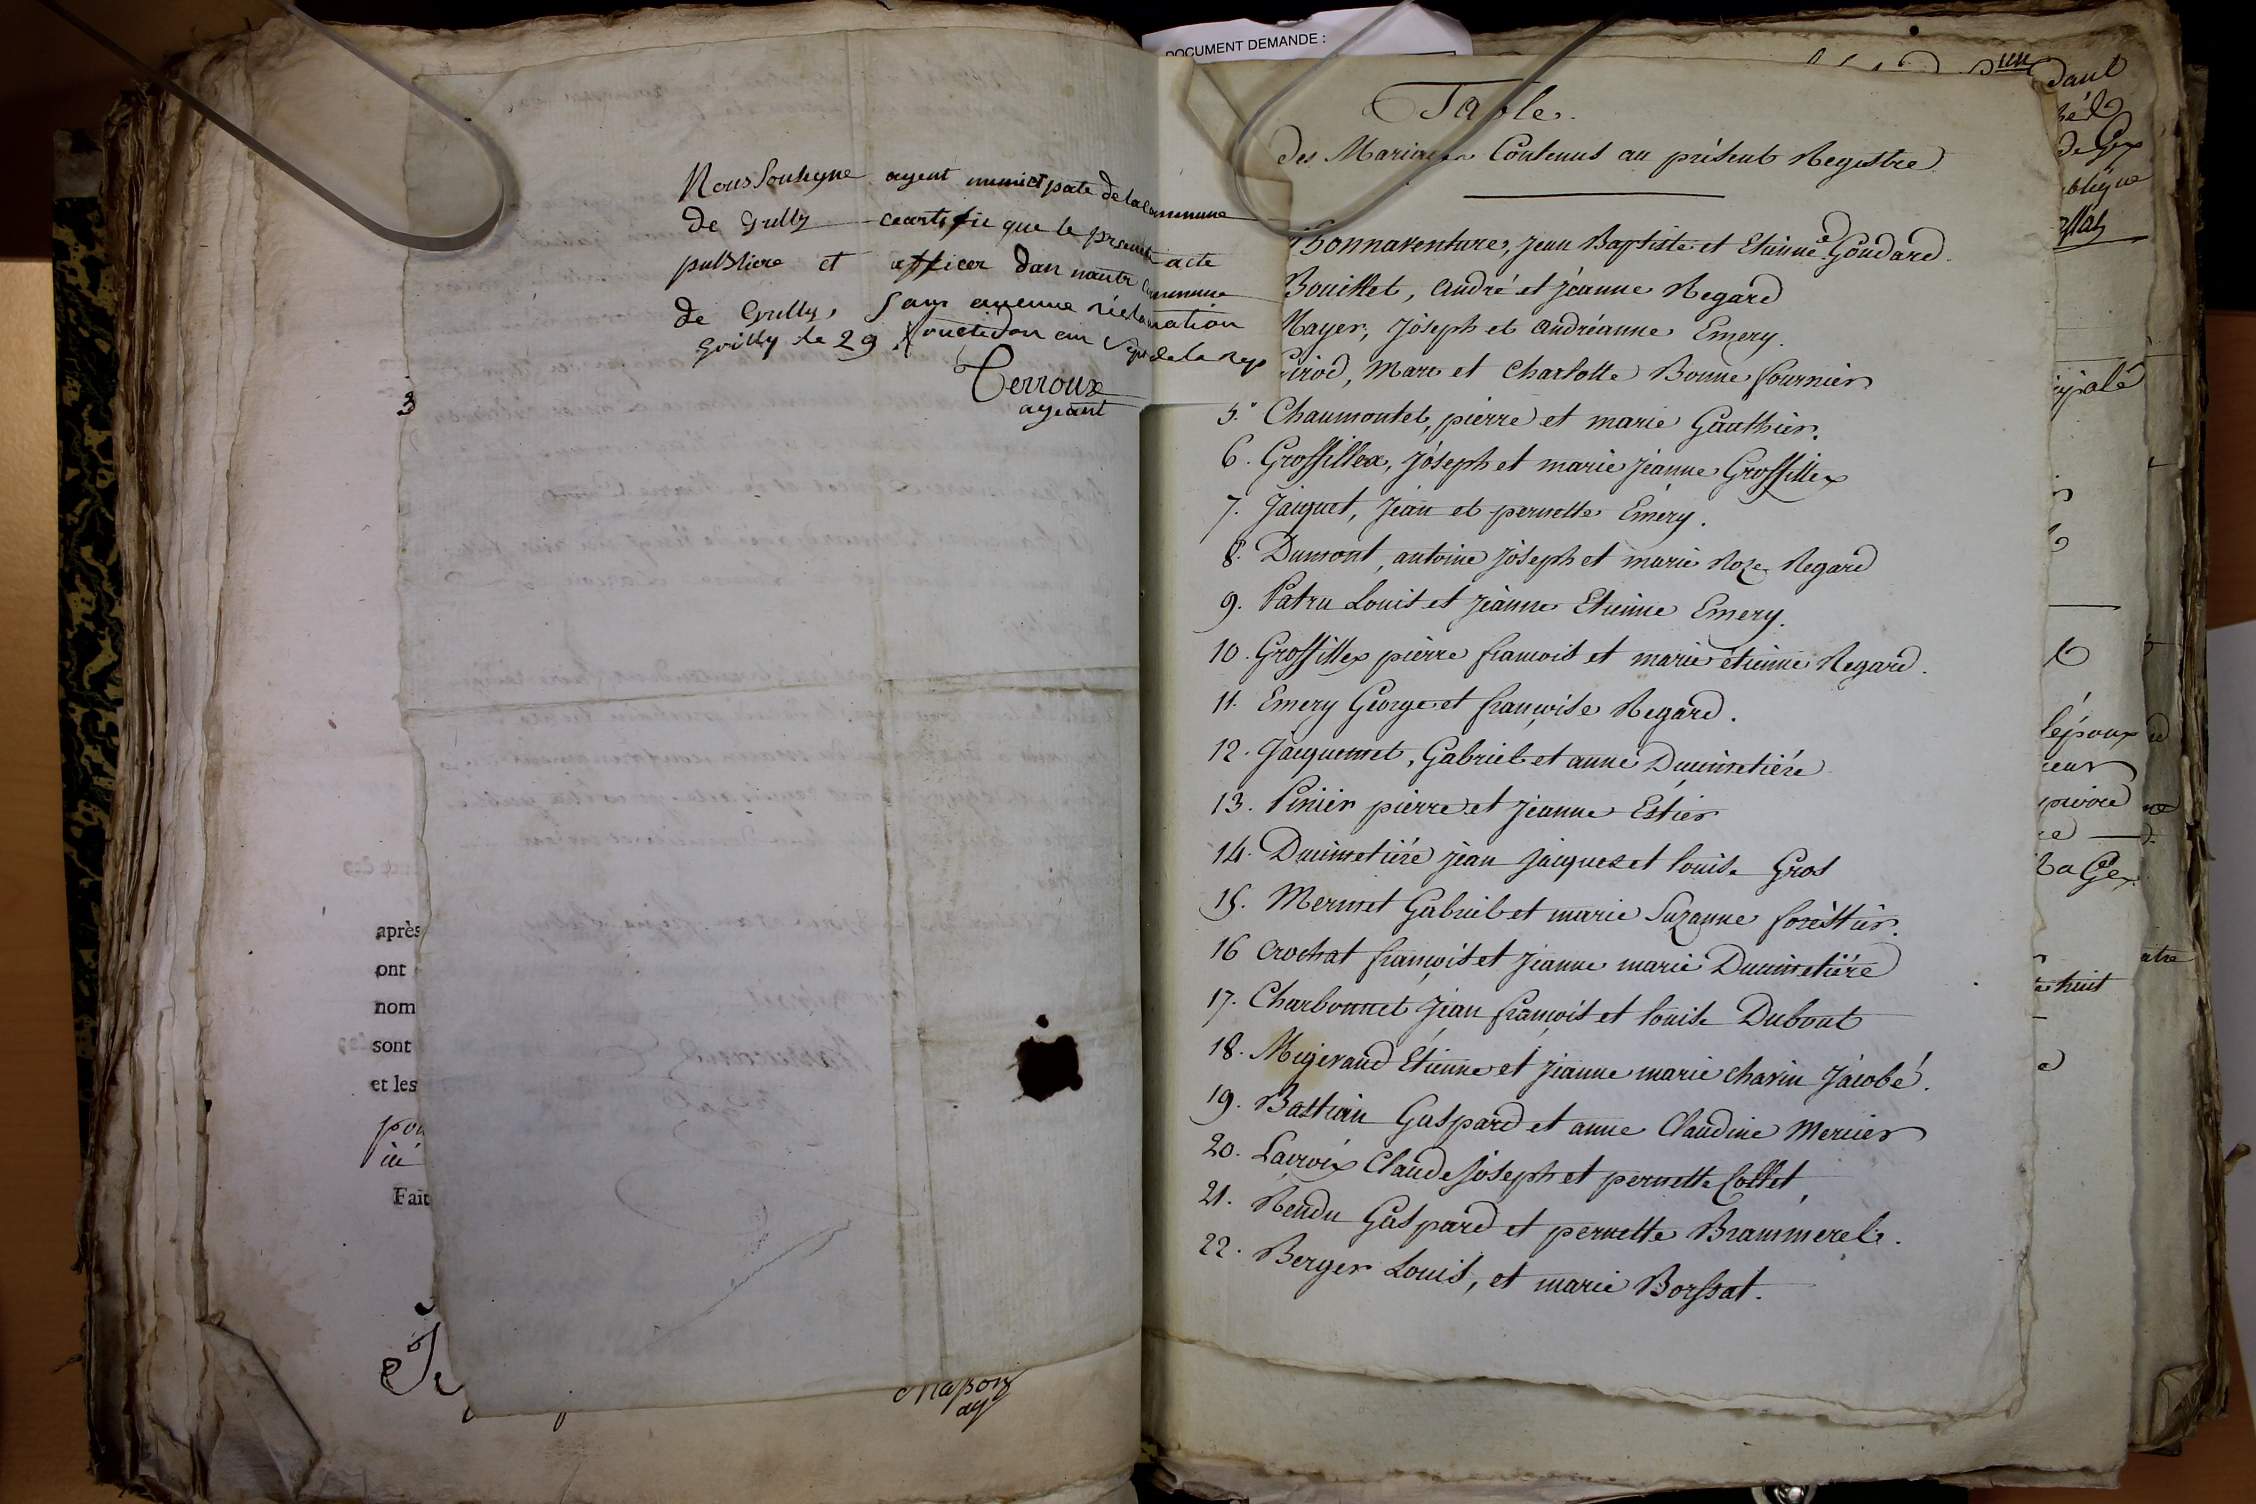 DOCUMENT DEMANDE :
Nous Soulsigne agent municipale de la commune
de Grilly ceartifie que le present acte
publiere et afficer dan nautre commune
de Grilly, Sans aucunne réclamation
Grilly le 29 fructidor an Sept de la Rep
Terroux
ageant
3
après
ont
nom
sont
et les
Fait
Table
des Mariages Contenus au présent Registre
Bonnaventure, Jean Baptiste et Etienne Goudard.
Bouillet, André et Jéanne Regard
Mayer, Joseph et andréanne Emery.
Girod, Marc et Charlotte Bonne fournier
5. Chaumontet, pierre et marie Gauthier.
6. Grossillex, Joseph et marie jéanne Grossillex
7. Jaiquet, Jéan et pernette Emery.
8. Dumont, antoine joseph et marie Roze Regard
9. Patru Louis et Jéanne Etienne Emery.
10. Grossillex pierre françois et marie étienne Regard.
11. Emery George et françoise Regard.
12. Jacquemet, Gabriel et anne Ducimetiére
13. Pinier pierre et Jeanne Estier
14. Ducimetiére jean Jaiques et louise Gros
15. Mermet Gabriel et marie Suzanne forestier.
16 Crochat françois et Jeanne marie Ducimetiére
17. Charbonnet Jéan françois et louise Dubout
18. Mujeraud Etienne et Jeanne marie Chavin Jacobé.
19. Bastian Gaspard et anne Claudine Mercier
20. Lacroix Claude Joseph et pernette Collet,
21. Rendu Gaspard et pernette Brammerel.
22. Berger Louis, et marie Borssat.
dant
de Gex
l'époux
huit